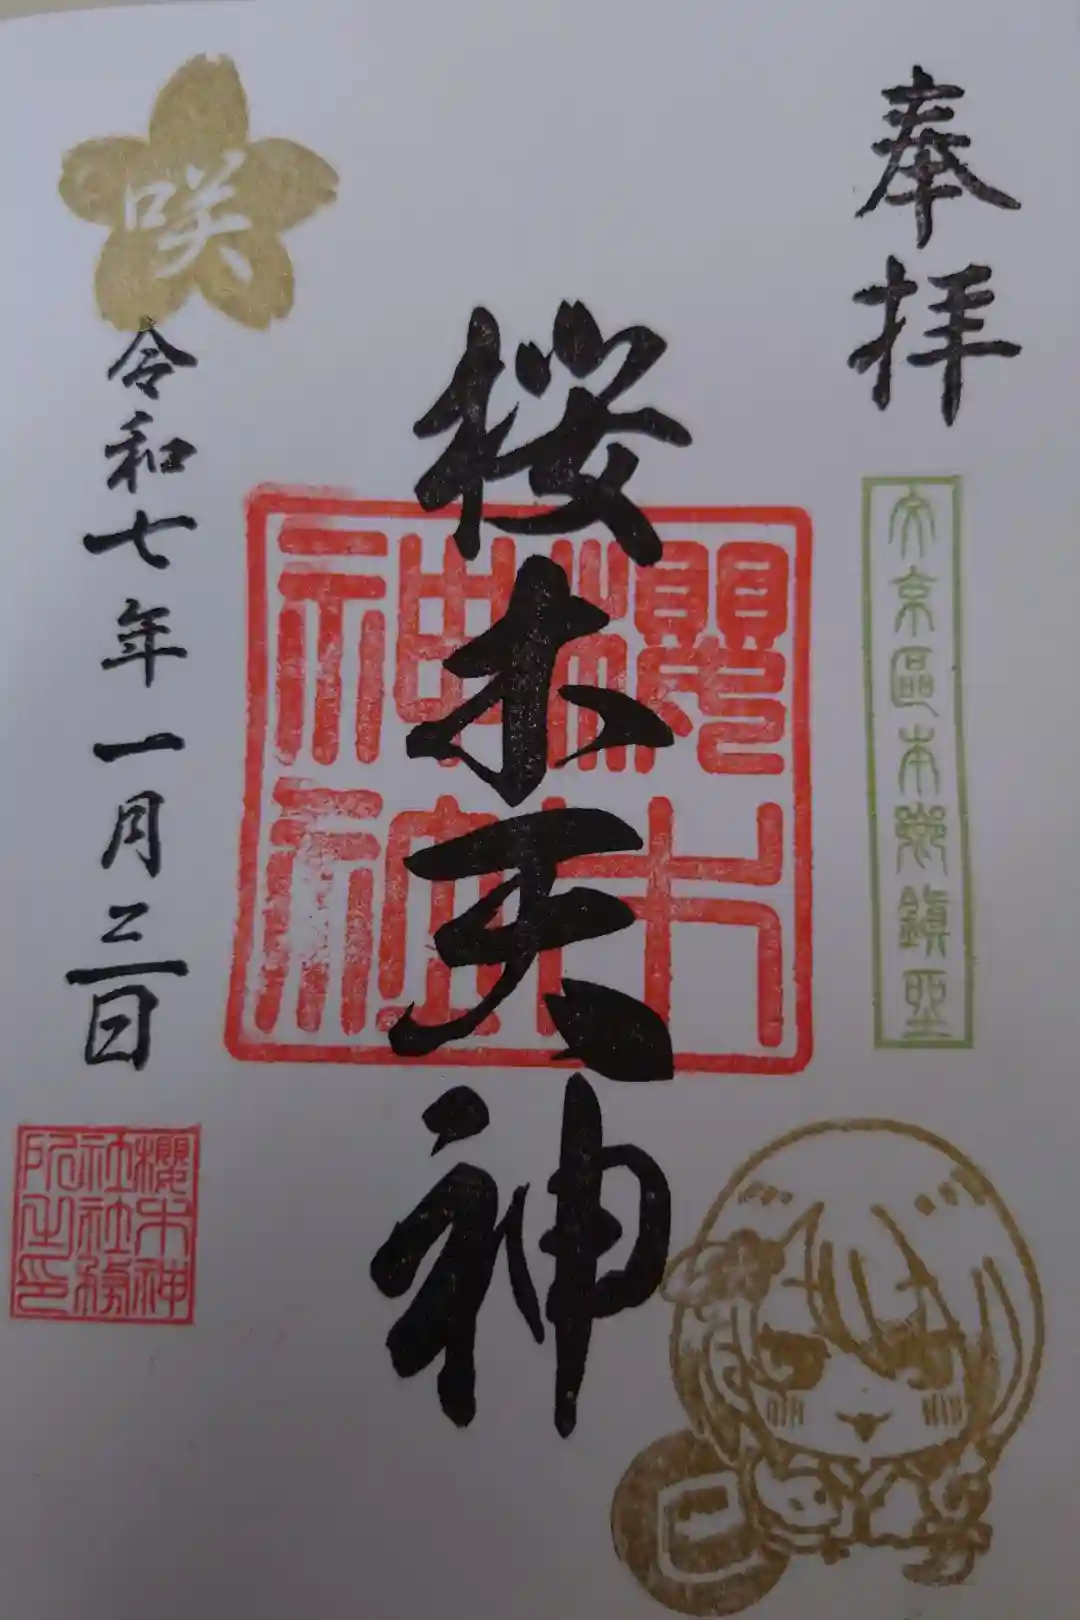 奉拝
文京區本郷鎮座
桜木天神
櫻木
神社
咲
令和七年一月三日
櫻木神
社社務
所之印
巳